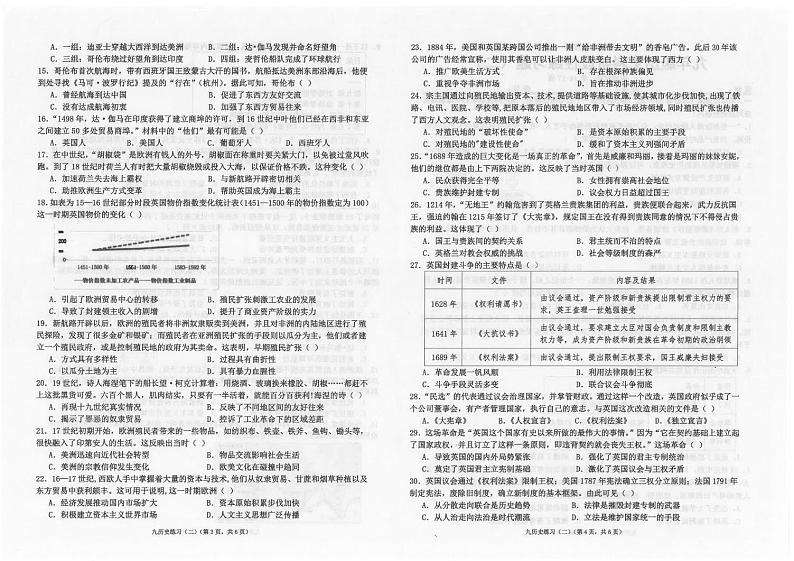 A. 一组：迪亚士穿越大西洋到达美洲
B. 二组：达•伽马发现并命名好望角
C. 三组：哥伦布绕过好望角到达印度
D. 四组：麦哲伦船队完成了环球航行
15. 哥伦布首次航海时，带有西班牙国王致蒙古大汗的国书，航船抵达美洲东部沿海后，他便
到处寻找《马可·波罗行纪》提及的“行在”(杭州)。据此可知，哥伦布（ ）
A. 曾经航海到达中国
B. 促进了东西方友好交流
C. 没有达成航海初衷
D. 加强了东西方贸易往来
16. “1498 年，达•伽马在印度获得了建立商埠的许可，到 16 世纪中叶他们已经在西非和东亚
之间建立 50 多处贸易商埠。”材料中的“他们”最有可能是（ ）
A. 英国人
B. 美国人
C. 葡萄牙人
D. 西班牙人
17. 在中世纪，“胡椒袋”是欧洲有钱人的外号，胡椒面在称量时要关紧大门，以免被过堂风吹
跑。到了 18 世纪时荷兰人有时把大量胡椒烧毁或投入大海，以保证价格不跌，这种变化（ ）
A. 加速荷兰失去海上霸权
B. 与新航路开辟密切相关
C. 助推欧洲生产方式变革
D. 帮助英国成为海上霸主
18. 如表为 15—16 世纪部分时段英国物价指数变化统计表(1451—1500 年的物价指数定为 100)
这一时期英国物价的变化（ ）
200
0
1451-1500 年
1551-1560 年
1583-1592 年
物价指数未加工农产品
物价指数工业制品
A. 引起了欧洲贸易中心的转移
B. 殖民扩张刺激工农业的发展
C. 导致了封建领主收入的剧增
D. 提升了商业资产阶级的实力
19. 新航路开辟以后，欧洲的殖民者将非洲奴隶贩卖到美洲，并且对非洲的内陆地区进行了殖
民探险，发现了很多金矿和银矿；而西葡英殖民者扩张的手段则以瓜分为主，他们或者建
立一个殖民政府，或是控制殖民地的政府为其卖命。这表明，早期殖民扩张（ ）
A. 方式具有多样性
B. 过程具有曲折性
C. 以瓜分土地为主
D. 具有暴力血腥性
20. 19 世纪，诗人海涅笔下的船长望·柯克计算着：用烧酒、玻璃换来橡胶、胡椒……都赶不
上这批黑货可爱。六百个黑人，肌肉结实，只要有一半活着，就能百分百获利！海涅的诗（ ）
A. 再现十九世纪真实情况
B. 反映了不同地区间的友好往来
C. 揭示了罪恶的奴隶贸易
D. 控诉了工业革命下的区域差距
21. 17 世纪初期开始，欧洲殖民者带来的一些物品，如纺织布、铁壶、铁斧、鱼钩、锄头等，
很快融入了印第安人的生活。这反映出当时（ ）
A. 美洲迅速向近代社会转型
B. 物品交流影响社会生活
C. 美洲的宗教信仰发生变化
D. 欧美文化在碰撞中趋同
22. 16—17 世纪，西欧人手中掌握着大量的资本与技术，他们从奴隶贸易、甘蔗和烟草种植以及
东方贸易中获利颇丰。这可用于说明，这一时期欧洲（ ）
A. 经济发展推动国内市场扩大
B. 资本原始积累步伐加快
C. 积极建立资本主义世界市场
D. 人文主义思潮广泛传播
九历史练习（二）（第 3 页，共 6 页）
23. 1884 年，美国和英国某跨国公司推出一则“给非洲带去文明”的香皂广告。此后 30 年该
公司的广告经常宣称，使用其香皂可以让非洲人皮肤变白。这主要体现了西方（ ）
A. 推广欧美生活方式
B. 存在根深蒂固种族偏见
C. 重视争夺非洲市场
D. 旨在推动非洲进步
24. 宗主国通过向殖民地输出资本、技术，提供道路等基础设施，使其城市化步伐加快，出现了铁
路、电讯、医院、学校等，把原本落后的殖民地地区带入了市场经济领域，同时殖民扩张也传播
了西方人文观念。这表明殖民扩张（ ）
A. 对殖民地的“破坏性使命”
B. 是资本原始积累的主要手段
C. 对殖民地的"建设性使命"
D. 缓和了资本主义列强间矛盾
25. “1688 年造成的巨大变化是一场真正的革命”，首先是威廉和玛丽，接着是玛丽的妹妹安妮，
他们的继位都是由上下两院决定的，这反映了当时英国（ ）
A. 民众获得完全平等
B. 女性拥有崇高社会地位
C. 贵族维护封建专制
D. 议会权力日益超过国王
26. 1214 年，“无地王”约翰危害到了英格兰贵族集团的利益，贵族便联合起来，武力反抗国
王，强迫约翰在 1215 年签订了《大宪章》，规定国王在没有得到贵族同意的情况下不得侵占贵
族的利益。这体现了（ ）
A. 国王与贵族间的契约关系
B. 君主统而不治的特点
C. 英格兰对教会权威的挑战
D. 社会等级制度的森严
27. 英国封建斗争的主要特点是（ ）
时间
文件
内容及结果
1628 年
《权利请愿书》
由议会通过，资产阶级和新贵族提出限制君主权力的要
求，英王查理一世勉强接受
1641 年
《大抗议书》
由议会通过，要求建立大臣对国会负责制度和限制主教
权力等，成为资产阶级和新贵族在革命初期的政治纲领
1689 年
《权利法案》
由议会通过，提出限制王权要求，国王威廉夫妇接受
A. 革命发展一帆风顺
B. 利用法律限制王权
C. 斗争手段灵活多变
D. 联合议会斗争彻底
28. “民选”的代表通过议会治理国家，并掌管财政，通过这样一个改造，英国政府似乎成了一
个公司董事会，有产者管理国家，执行自己的意志。与英国这次改造相关的文件是（ ）
A.《大宪章》
B.《人权宣言》
C.《权利法案》
D.《独立宣言》
29. 这场革命是“英国这个国家有史以来所做的最伟大的事情。”因为“它在契约基础上建立起
了国家政权，并且订立了这样一条原则，即违背契约就会丧失王权。”这场革命（ ）
A. 导致英国的国内外局势紧张
B. 强化了英国的君主专制统治
C. 奠定了英国君主立宪制基础
D. 激化了英国议会与王权矛盾
30. 英国议会通过《权利法案》限制王权；美国 1787 年宪法确立三权分立原则；法国 1791 年
制定宪法，废除旧制度，确立新制度的基本框架。由此可见（ ）
A. 从分散走向联合是历史趋势
B. 法律是摧毁封建专制的武器
C. 从人治走向法治是时代潮流
D. 立法是维护国家统一的手段
九历史练习（二）（第 4 页，共 6 页）